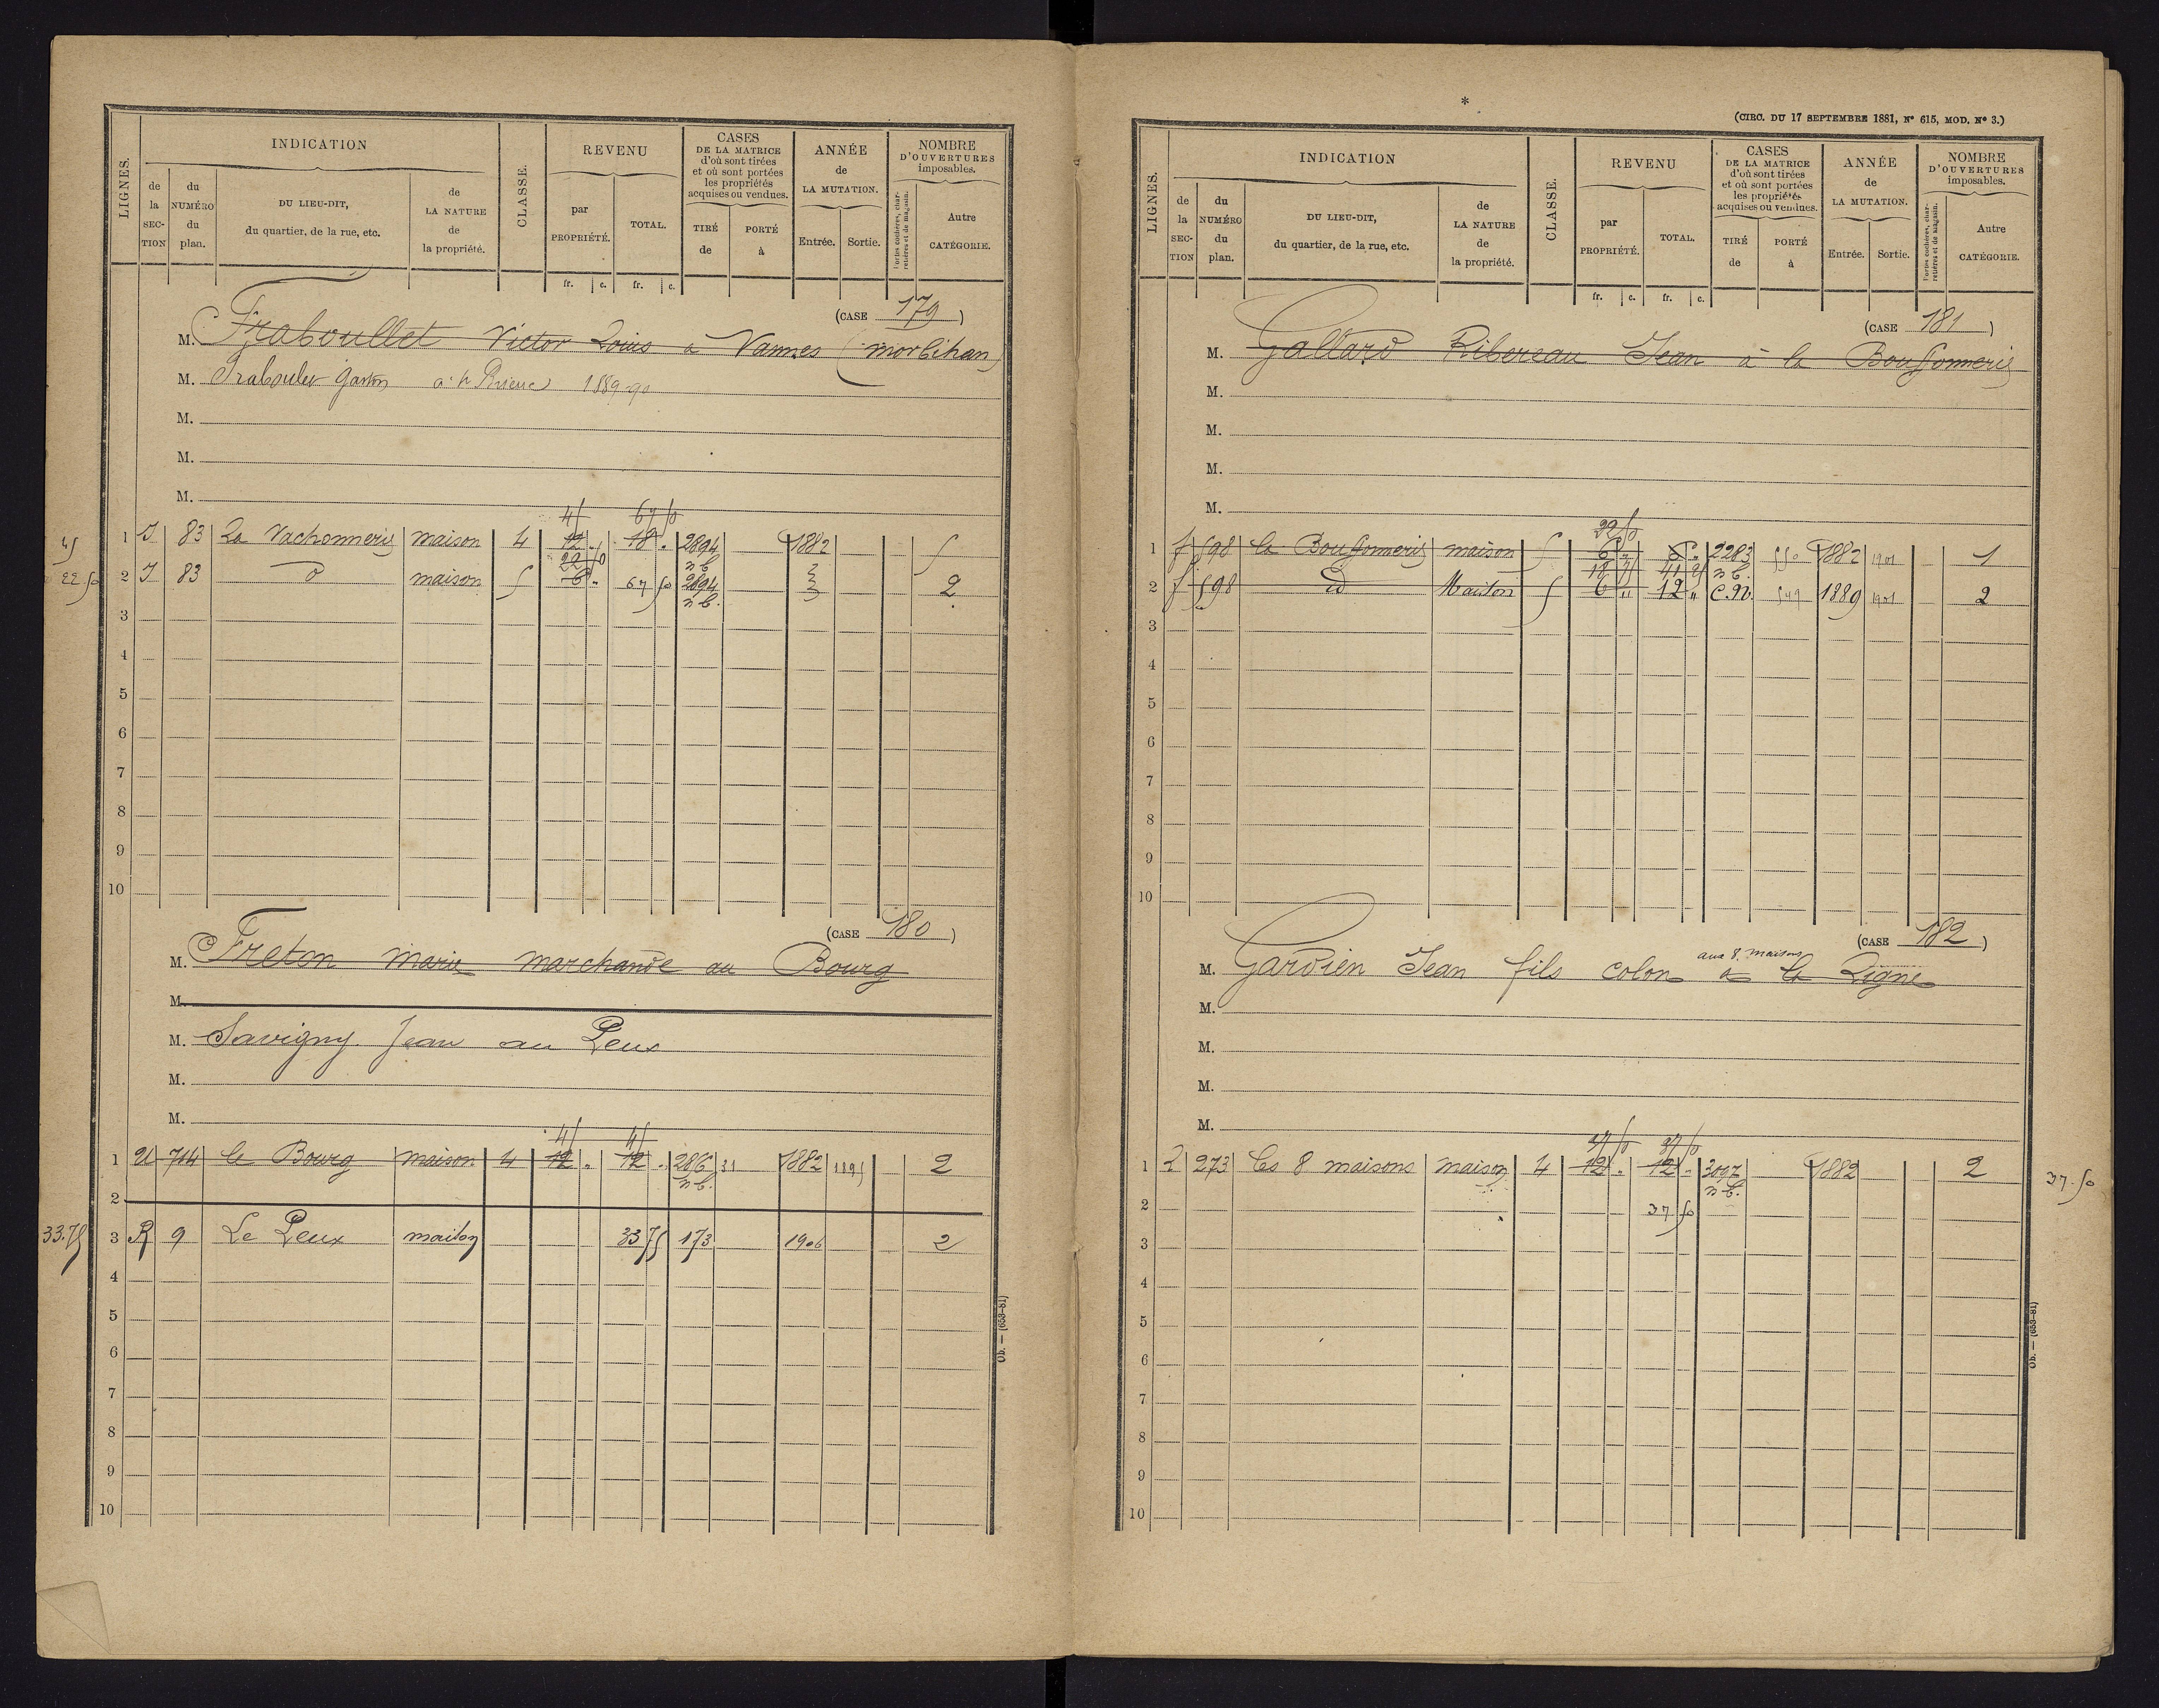 LIGNES.
INDICATION
de la SECTION
du NUMÉRO du plan.
DU LIEU-DIT, du quartier, de la rue, etc.
de LA NATURE de la propriété.
CLASSE.
REVENU
par PROPRIÉTÉ.
TOTAL.
fr. c. fr. c.
CASES DE LA MATRICE d'où sont tirées et où sont portées les propriétés acquises ou vendues.
TIRÉ de
PORTÉ à
ANNÉE de LA MUTATION.
Entrée. Sortie.
NOMBRE D'OUVERTURES imposables.
Portes cochères, charretières et de magasin.
Autre CATÉGORIE.
(CASE 179)
M. Fraboullet Victor Louis a Vannes (morbihan)
M. Fraboulet Gaston 1889-90
M.
M.
M.
45 67 50
45 1 J 83 La Vachonnerie maison 4 12 . 18 . 2894 1882 5
22 50 n b
22 50 2 J 83 d maison 5 6 . 67 50 2894 2
n b.
3
4
5
6
7
8
9
10
(CASE 180)
M. Freton marie marchande au Bourg
M.
M. Savigny Jean au Peux
M.
M.
45 45
1 U 714 le Bourg maison 4 12 . 12 . 2816 31 1882 1895 2
n b.
2
33.75 3 R 9 Le Peux maison 33 75 173 1906 2
4
5
6
7
8
9
10
Ob. — (653-81)
*
(CIRC. DU 17 SEPTEMBRE 1881, N° 615, MOD. N° 3.)
LIGNES.
INDICATION
de la SECTION
du NUMÉRO du plan.
DU LIEU-DIT, du quartier, de la rue, etc.
de LA NATURE de la propriété.
CLASSE.
REVENU
par PROPRIÉTÉ.
TOTAL.
fr. c. fr. c.
CASES DE LA MATRICE d'où sont tirées et où sont portées les propriétés acquises ou vendues.
TIRÉ de
PORTÉ à
ANNÉE de LA MUTATION.
Entrée. Sortie.
NOMBRE D'OUVERTURES imposables.
Portes cochères, charretières et de magasin.
Autre CATÉGORIE.
(CASE 181)
M. Gallard Ribereau Jean à la Bouffonnerie
M.
M.
M.
M.
22 50
1 f 598 la Bouffonnerie maison 5 6 " 6 " 2283 550 1882 1901 1
41 25 n b.
2 f 598 id Maison 5 6 " 12 " C.N. 549 1889 1901 2
3
4
5
6
7
8
9
10
(CASE 182)
aux 8 maisons
M. Gardien Jean fils colon a la Ligne
M.
M.
M.
M.
37 50 37 50
1 273 les 8 maisons maison 4 12 . 12 . 3097 1882 2 37.50
n b.
2 37 50
3
4
5
6
7
8
9
10
Ob. — (653-81)